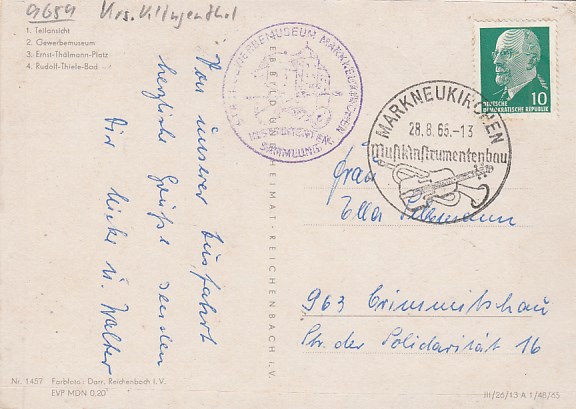 9659 Krs. Klingenthal
1. Teilansicht
2. Gewerbemuseum
3. Ernst-Thälmann-Platz
4. Rudolf-Thiele-Bad
GEWERBEMUSEUM MARKNEUKIRCHEN
INSTRUMENTEN-
SAMMLUNG
DEUTSCHE
DEMOKRATISCHE REPUBLIK
10
MARKNEUKIRCHEN
28.8.66.-13
Musikinstrumentenbau
Von unserer Ausfahrt
herzliche Grüße senden
Dir u. Walter
BILD U. HEIMAT - REICHENBACH i. V.
Frau
Ella
963 Crimmitschau
Str. der Solidarität 16
Nr. 1457 Farbfoto: Darr, Reichenbach i. V.
EVP MDN 0,20
III/26/13 A 1/48/65